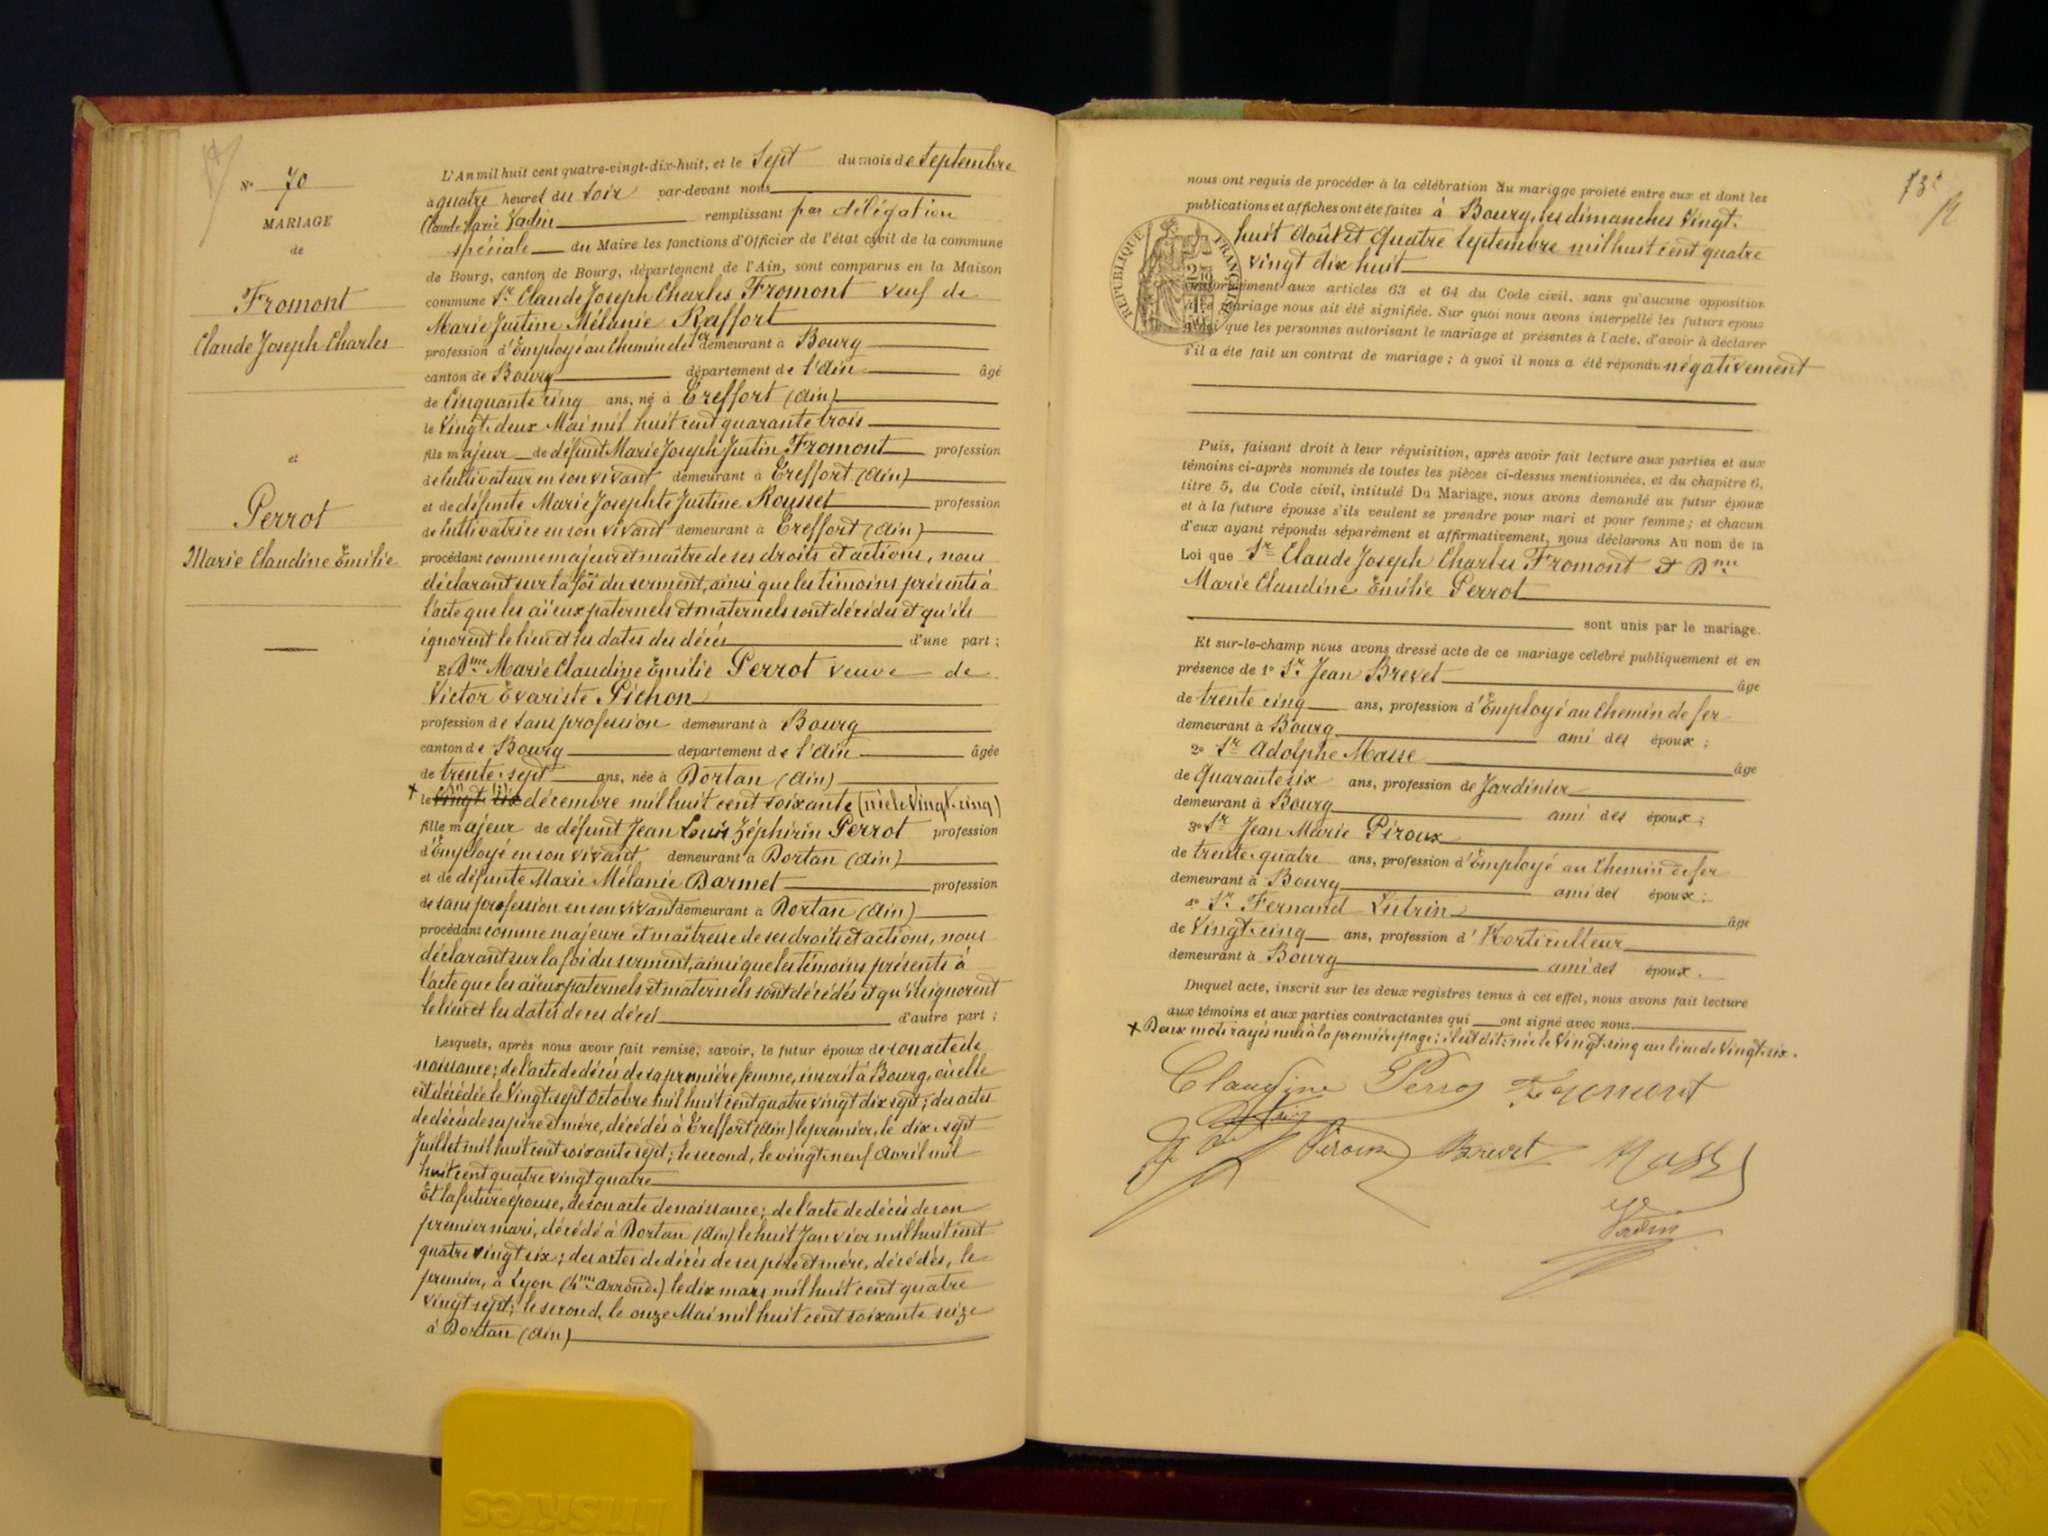 N° 70
MARIAGE
de
Fromont
Claude Joseph Charles
et
Perrot
Marie Claudine Emilie
L'An mil huit cent quatre-vingt-dix-huit, et le Sept du mois de Septembre
à quatre heures du soir par-devant nous
Claude Marie Vadin remplissant par délégation
spéciale du Maire les fonctions d'Officier de l'état civil de la commune
de Bourg, canton de Bourg, département de l'Ain, sont comparus en la Maison
commune Sr Claude Joseph Charles Fromont veuf de
Marie Justine Mélanie Raffort
profession d'Employé au Chemin de fer demeurant à Bourg
canton de Bourg département de l'Ain âgé
de Cinquante cinq ans, né à Treffort (Ain)
le Vingt deux Mai mil huit cent quarante trois
fils majeur de défunt Marie Joseph Justin Fromont profession
de Cultivateur en son vivant demeurant à Treffort (Ain)
et de défunte Marie Josephte Justine Rousset profession
de Cultivatrice en son vivant demeurant à Treffort (Ain)
procédant comme majeur et maître de ses droits et actions, nous
déclarant sur la foi du serment, ainsi que les témoins présents à
l'acte que les aïeux paternels et maternels sont décédés et qu'ils
ignorent le lieu et les dates des décès d'une part ;
Et Dme Marie Claudine Emilie Perrot veuve de
Victor Evariste Pichon
profession de sans profession demeurant à Bourg
canton de Bourg département de l'Ain âgée
de trente sept ans, née à Dortan (Ain)
+ le Vingt six décembre mil huit cent soixante (née le Vingt-cinq)
fille majeur de défunt Jean Louis Zéphirin Perrot profession
d'Employé en son vivant demeurant à Dortan (Ain)
et de défunte Marie Mélanie Darmet profession
de sans profession en son vivant demeurant à Dortan (Ain)
procédant comme majeure et maîtresse de ses droits et actions, nous
déclarant sur la foi du serment, ainsi que les témoins présents à
l'acte que les aïeux paternels et maternels sont décédés et qu'ils ignorent
le lieu et les dates de ces décès d'autre part ;
Lesquels, après nous avoir fait remise, savoir, le futur époux de son acte de
naissance ; de l'acte de décès de sa première femme, inscrit à Bourg, où elle
est décédée le Vingt sept Octobre mil huit cent quatre vingt dix sept ; des actes
de décès de ses père et mère, décédés à Treffort (Ain) le premier, le dix sept
Juillet mil huit cent soixante sept ; le second, le vingt neuf Avril mil
huit cent quatre vingt quatre
Et la future épouse, de son acte de naissance ; de l'acte de décès de son
premier mari, décédé à Dortan (Ain) le huit Janvier mil huit cent
quatre vingt six ; des actes de décès de ses père et mère, décédés, le
premier, à Lyon (4me Arrondt) le dix mars mil huit cent quatre
vingt sept ; le second, le onze Mai mil huit cent soixante seize
à Dortan (Ain)
73e
nous ont requis de procéder à la célébration du mariage projeté entre eux et dont les
publications et affiches ont été faites à Bourg, les dimanches Vingt-
huit Août et Quatre Septembre mil huit cent quatre
Vingt dix huit
RÉPUBLIQUE FRANÇAISE
conformément aux articles 63 et 64 du Code civil, sans qu'aucune opposition
à ce mariage nous ait été signifiée. Sur quoi nous avons interpellé les futurs époux
ainsi que les personnes autorisant le mariage et présentes à l'acte, d'avoir à déclarer
s'il a été fait un contrat de mariage ; à quoi il nous a été répondu négativement
Puis, faisant droit à leur réquisition, après avoir fait lecture aux parties et aux
témoins ci-après nommés de toutes les pièces ci-dessus mentionnées, et du chapitre 6,
titre 5, du Code civil, intitulé Du Mariage, nous avons demandé au futur époux
et à la future épouse s'ils veulent se prendre pour mari et pour femme ; et chacun
d'eux ayant répondu séparément et affirmativement, nous déclarons Au nom de la
Loi que Sr Claude Joseph Charles Fromont et Dme
Marie Claudine Emilie Perrot
sont unis par le mariage.
Et sur-le-champ nous avons dressé acte de ce mariage célébré publiquement et en
présence de 1° Sr Jean Brevet âgé
de trente cinq ans, profession d'Employé au Chemin de fer
demeurant à Bourg ami des époux ;
2° Sr Adolphe Masse âgé
de Quarante six ans, profession de Jardinier
demeurant à Bourg ami des époux ;
3° Sr Jean Marie Piroux
de trente quatre ans, profession d'Employé au Chemin de fer
demeurant à Bourg ami des époux ;
4° Sr Fernand Lutrin âgé
de Vingt-cinq ans, profession d'Horticulteur
demeurant à Bourg ami des époux.
Duquel acte, inscrit sur les deux registres tenus à cet effet, nous avons fait lecture
aux témoins et aux parties contractantes qui ont signé avec nous.
+ Deux mots rayés nuls à la première page ; il est dit : née le Vingt-cinq au lieu de Vingt-six.
Claudine Perrot Fromont
Piroux Brevet Masse
Vadin